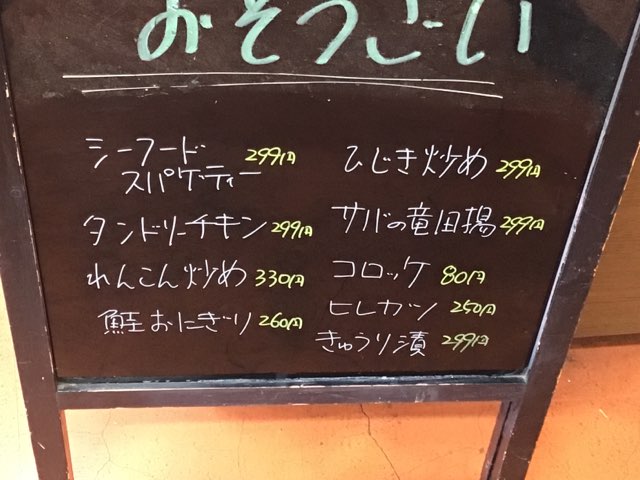 おそうざい
シーフード
スパゲティー 299円
タンドリーチキン 299円
れんこん炒め 330円
鮭おにぎり 260円
ひじき炒め 299円
サバの竜田揚 299円
コロッケ 80円
ヒレカツ 250円
きゅうり漬 299円